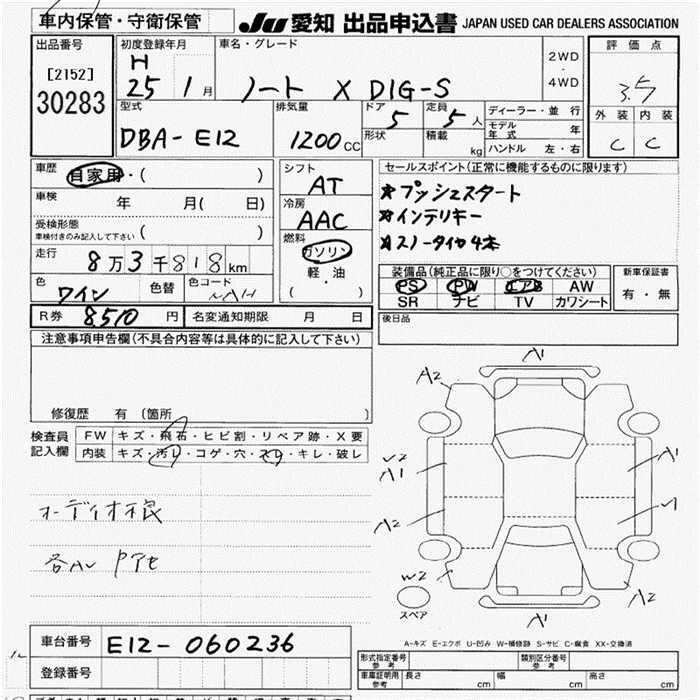 車内保管・守衛保管
JU 愛知 出品申込書 JAPAN USED CAR DEALERS ASSOCIATION
出品番号
[2152]
30283
初度登録年月
H
25 1月
車名・グレード
ノート X DIG-S
2WD
・
4WD
評価点
3.5
外装 内装
C C
型式
DBA-E12
排気量
1200CC
ドア
5
定員
5人
形状
積載
kg
ディーラー・並行
モデル年式 年
ハンドル 左・右
車歴
自家用・( )
車検 年 月( 日)
受検形態
車検付きのみ記入して下さい ( )
走行 8万3千818km
色 ワイン 色替 色コード NAH
シフト
AT
冷房
AAC
燃料
ガソリン
軽・油
( )
セールスポイント(正常に機能するものに限ります)
★プッシュスタート
★インテリキー
★スノータイヤ4本
装備品(純正品に限り○をつけてください)
PS PW エアB AW
SR ナビ TV カワシート
新車保証書
有・無
R券 8510円 名変通知期限 月 日
後日品
注意事項申告欄(不具合内容等は具体的に記入して下さい)
修復歴 有 (箇所 )
検査員記入欄
FW キズ・飛石・ヒビ割・リペア跡・X要
内装 キズ・汚れ・コゲ・穴・スレ・キレ・破レ
オーディオ不良
各AU Pアセ
A1
A2
W2
A1
A1
A2
W2
A2
A1
スペア
A-キズ E-エクボ U-凹み W-補修跡 S-サビ C-腐食 XX-交換済
車台番号 E12-060236
登録番号
形式指定番号 参考
類別区分番号 参考
車庫証明用 参考 長さ cm 幅 cm 高さ cm